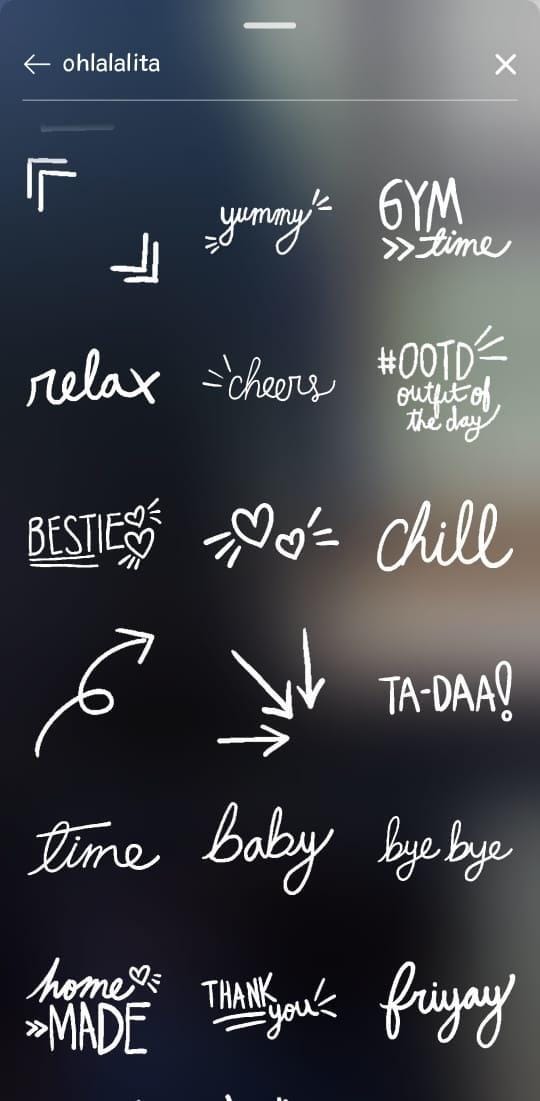 ohlalalita
yummy
GYM
time
relax
cheers
#OOTD
outfit of
the day
BESTIE
chill
TA-DAA!
time
baby
bye bye
home
MADE
THANK
you
friyay